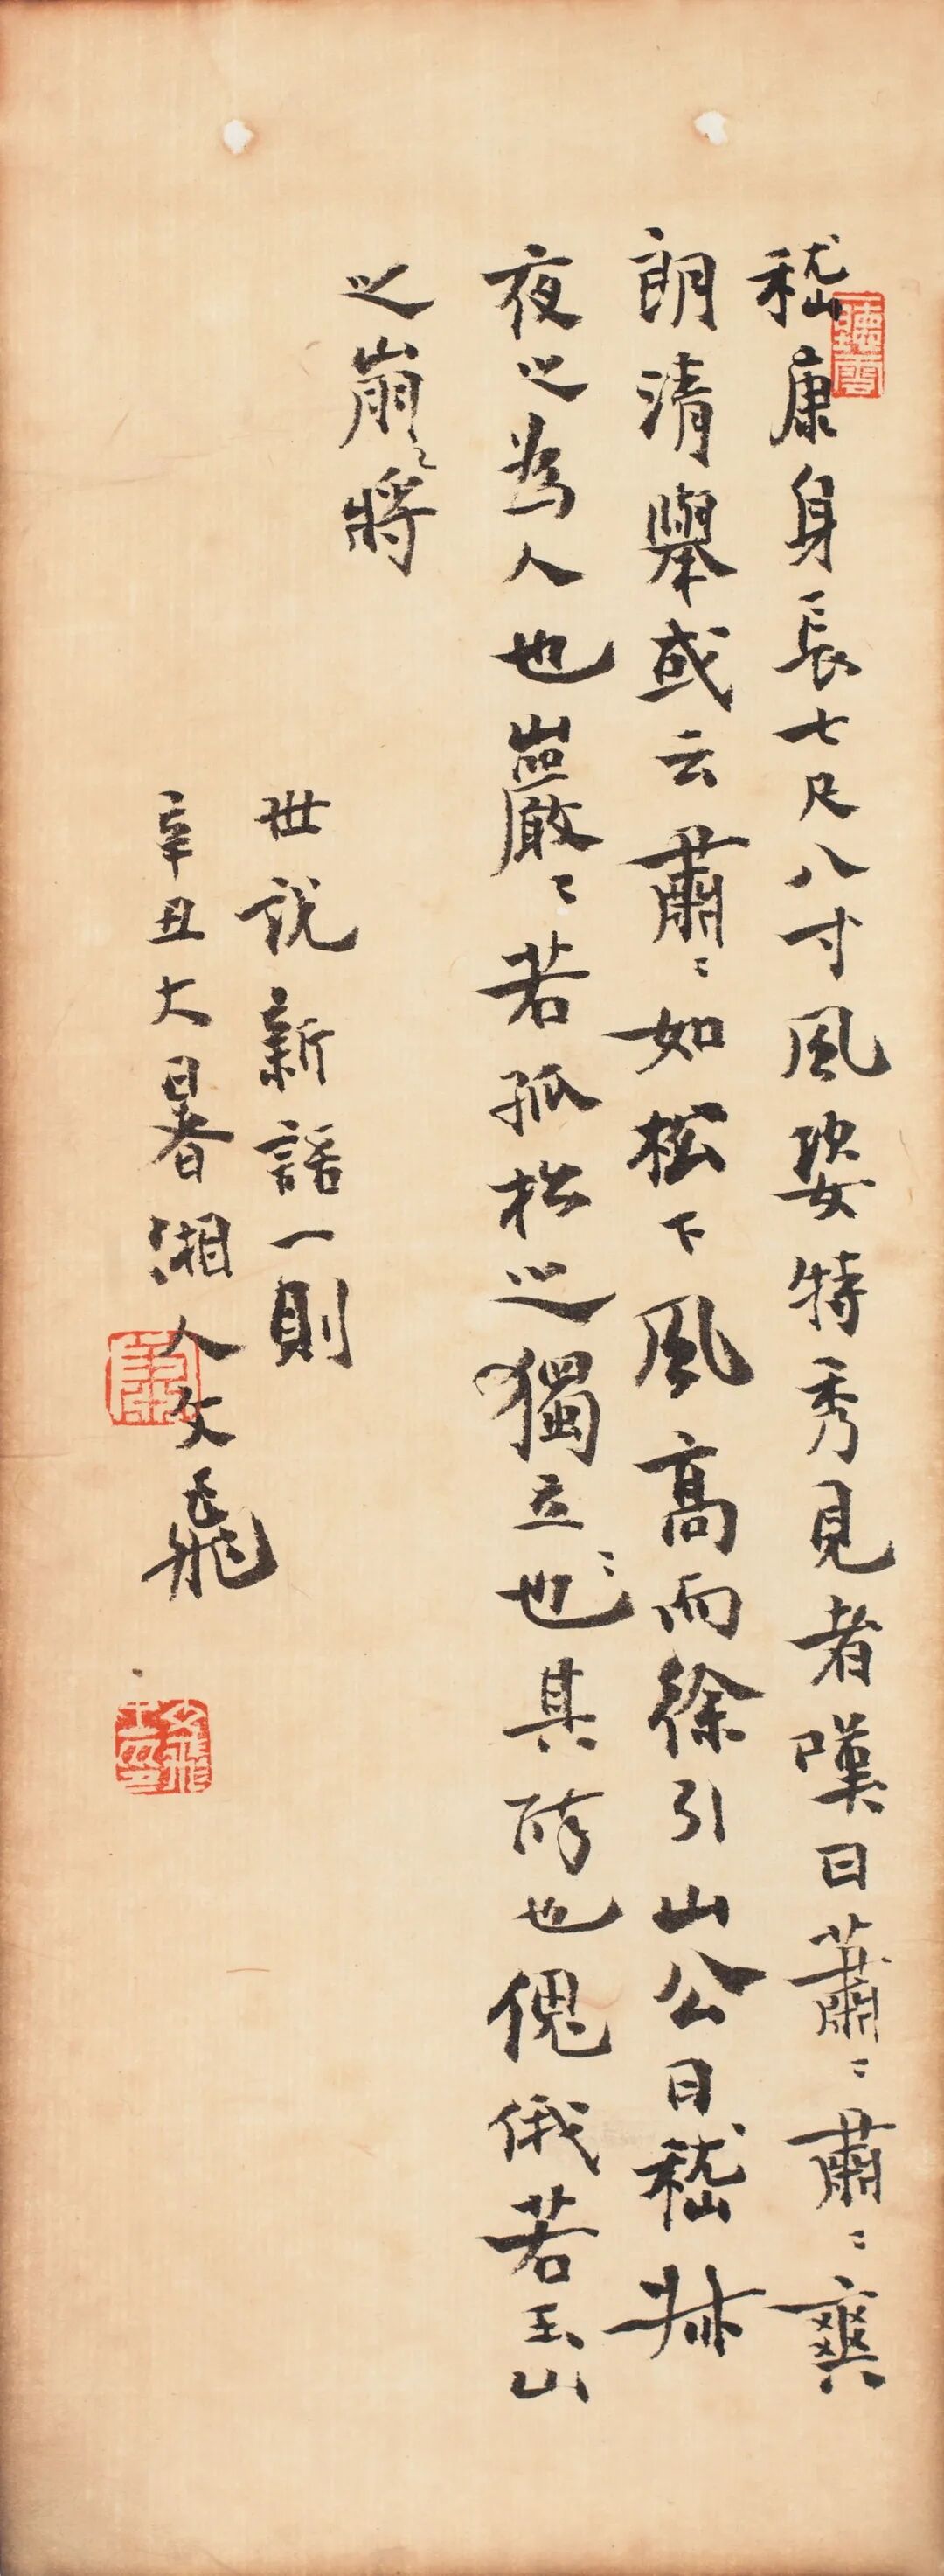 嵇康身長七尺八寸風姿特秀見者嘆曰蕭〻肅〻爽
朗清舉或云肅〻如松下風高而徐引山公曰嵇叔
夜之為人也巖〻若孤松之獨立也其酔也傀俄若玉山
之崩將
世説新語一則
辛丑大暑湘人文飛